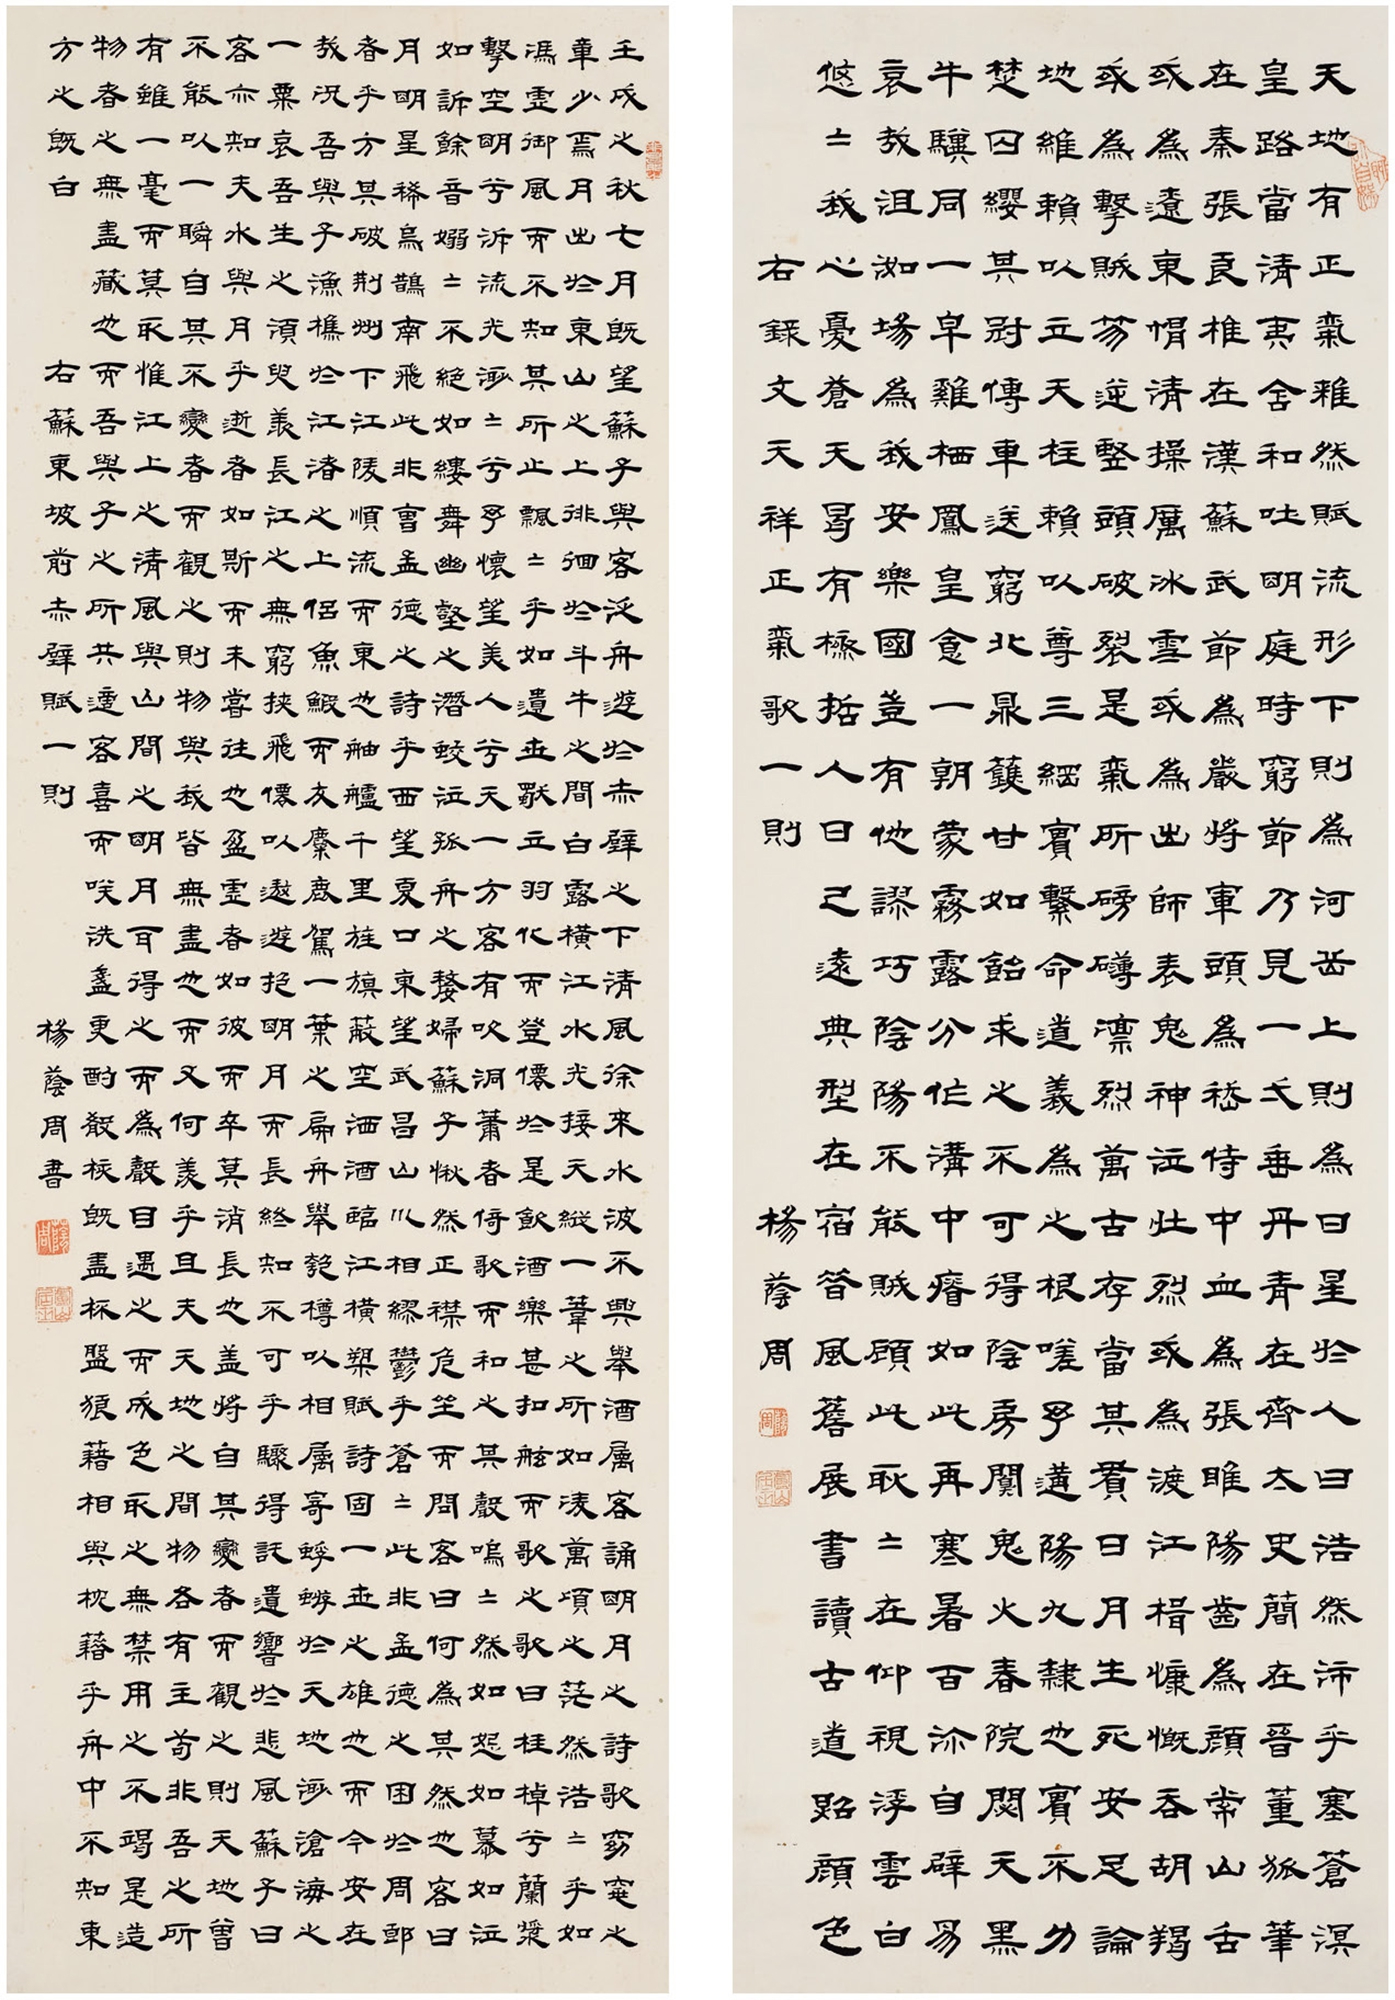 天地有正氣雜然賦流形下則為河岳上則為日星於人曰浩然沛乎塞蒼溟
皇路當清夷含和吐明庭時窮節乃見一弌垂丹青在齊太史簡在晉董狐筆
在秦張良椎在漢蘇武節為嚴將軍頭為嵇侍中血為張睢陽齒為顏常山舌
或為遼東帽清操厲冰雪或為出師表鬼神泣壯烈或為渡江楫慷慨吞胡羯
或為擊賊笏逆豎頭破裂是氣所磅礴凜烈萬古存當其貫日月生死安足論
地維賴以立天柱賴以尊三綱實繫命道義為之根嗟予遘陽九隸也實不力
楚囚纓其冠傳車送窮北鼎鑊甘如飴求之不可得陰房闃鬼火春院閟天黑
牛驥同一皁雞栖鳳皇食一朝蒙霧露分作溝中瘠如此再寒暑百沴自辟易
哀哉沮洳場為我安樂國豈有他謬巧陰陽不能賊顧此耿二在仰視浮雲白
悠二我心憂蒼天曷有極哲人日已遠典型在宿昔風簷展書讀古道照顏色
右錄文天祥正氣歌一則 楊蔭周
蔭周
壬戌之秋七月既望蘇子與客泛舟遊於赤壁之下清風徐來水波不興舉酒屬客誦明月之詩歌窈窕之
章少焉月出於東山之上徘徊於斗牛之間白露橫江水光接天縱一葦之所如凌萬頃之茫然浩二乎如
馮虛御風而不知其所止飄二乎如遺世獨立羽化而登僊於是飲酒樂甚扣舷而歌之歌曰桂棹兮蘭槳
擊空明兮泝流光渺二兮予懷望美人兮天一方客有吹洞簫者倚歌而和之其聲嗚二然如怨如慕如泣
如訴餘音嫋二不絕如縷舞幽壑之潛蛟泣孤舟之嫠婦蘇子愀然正襟危坐而問客曰何為其然也客曰
月明星稀烏鵲南飛此非曹孟德之詩乎西望夏口東望武昌山川相繆鬱乎蒼二此非孟德之困於周郎
者乎方其破荊州下江陵順流而東也舳艫千里旌旗蔽空洒酒臨江橫槊賦詩固一世之雄也而今安在
哉況吾與子漁樵於江渚之上侶魚鰕而友麋鹿駕一葉之扁舟舉匏樽以相屬寄蜉蝣於天地渺滄海之
一粟哀吾生之須臾羨長江之無窮挾飛僊以遨遊抱明月而長終知不可乎驟得託遺響於悲風蘇子曰
客亦知夫水與月乎逝者如斯而未嘗往也盈虛者如彼而卒莫消長也蓋將自其變者而觀之則天地曾
不能以一瞬自其不變者而觀之則物與我皆無盡也而又何羨乎且夫天地之間物各有主苟非吾之所
有雖一毫而莫取惟江上之清風與山間之明月耳得之而為聲目遇之而成色取之無禁用之不竭是造
物者之無盡藏也而吾與子之所共適客喜而笑洗盞更酌殽核既盡杯盤狼藉相與枕藉乎舟中不知東
方之既白 右蘇東坡前赤壁賦一則 楊蔭周書
蔭周